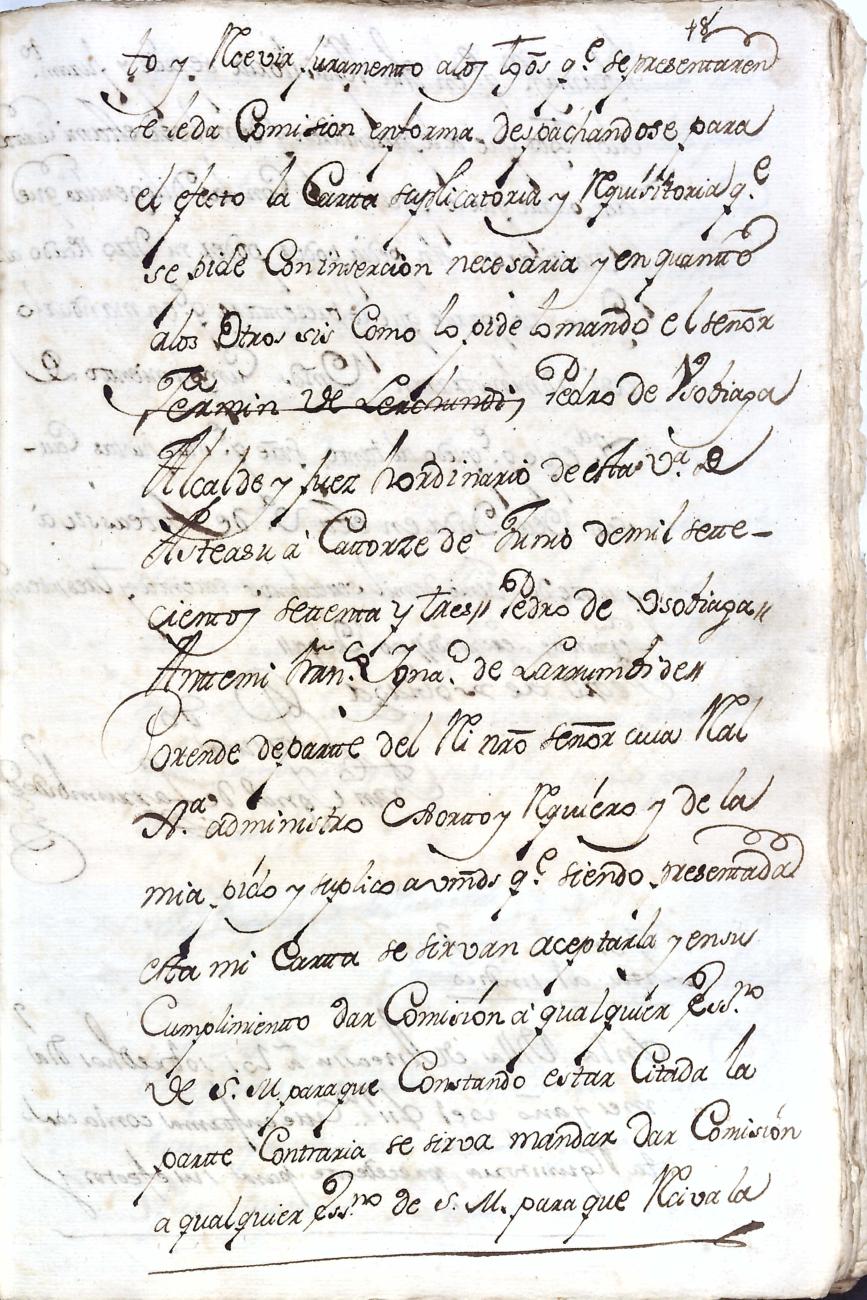 48
to y Rcevir juramento alos tgõs q.e sepresentaren
se leda Comision enforma despachandose para
el efecto la Cartta suplicatoria y Rquisitoria q.e
se pide Coninsercion necesaria y en quantto
alos Otros sis Como lo pide lo mando el señor
Fermin de Lerchundi, Pedro de Vsobiaga
Alcalde y juez hordinario de esta V.a de
Asteasu à Cattorze de Junio demil sette-
cientos settenta y tres// Pedro de Vsobiaga//
Anttemi Fran.co Ygna.o de Larrumbide//
Porende departte del Ri nrõ señor cuia Ral
A.a administro Exortto y Rquiero y de la
mia pido y suplico a vm̃ds q.e siendo presentada
esta mi Cartta se sirvan aceptarla y ensus
Cumplimientto dar Comisión à qualquier Ess.no
de S. M. paraque Constando estar Citada la
partte Contraria se sirva mandar dar Comisión
a qualquier Ess.no de S. M. para que Rciva la